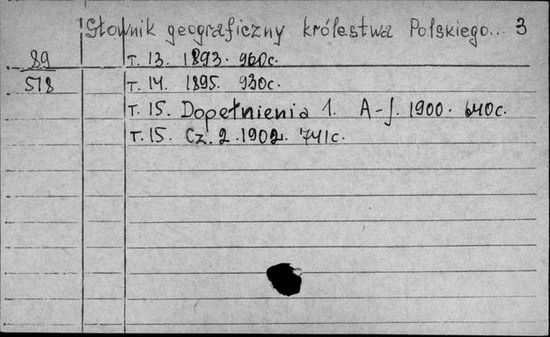 Słownik geograficzny królestwa Polskiego... 3
89 т. 13. 1893. 960с.
518 т. 14. 1895. 930с.
т. 15. Dopełnienia 1. A-J. 1900. 640с.
т. 15. Cz. 2. 1902. 741с.